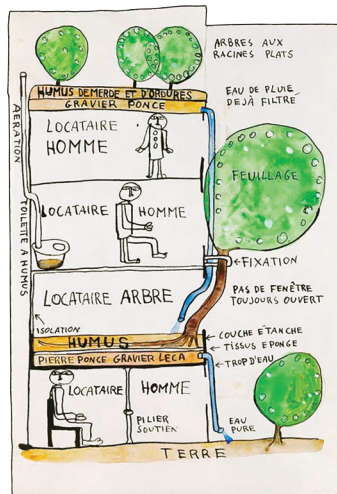 ARBRES AUX
RACINES PLATS
HUMUS DEMERDE ET D'ORDURES
GRAVIER PONCE
EAU DE PLUIE
DEJÀ FILTRÉ
AERATION
LOCATAIRE
HOMME
FEUILLAGE
TOILETTE A HUMUS
LOCATAIRE HOMME
FIXATION
LOCATAIRE ARBRE
PAS DE FENÊTRE
TOUJOURS OUVERT
ISOLATION
HUMUS
COUCHE ÉTANCHE
TISSUS EPONGE
PIERRE PONCE GRAVIER LECA
TROP D'EAU
LOCATAIRE HOMME
PILIER
SOUTIEN
EAU
PURE
TERRE